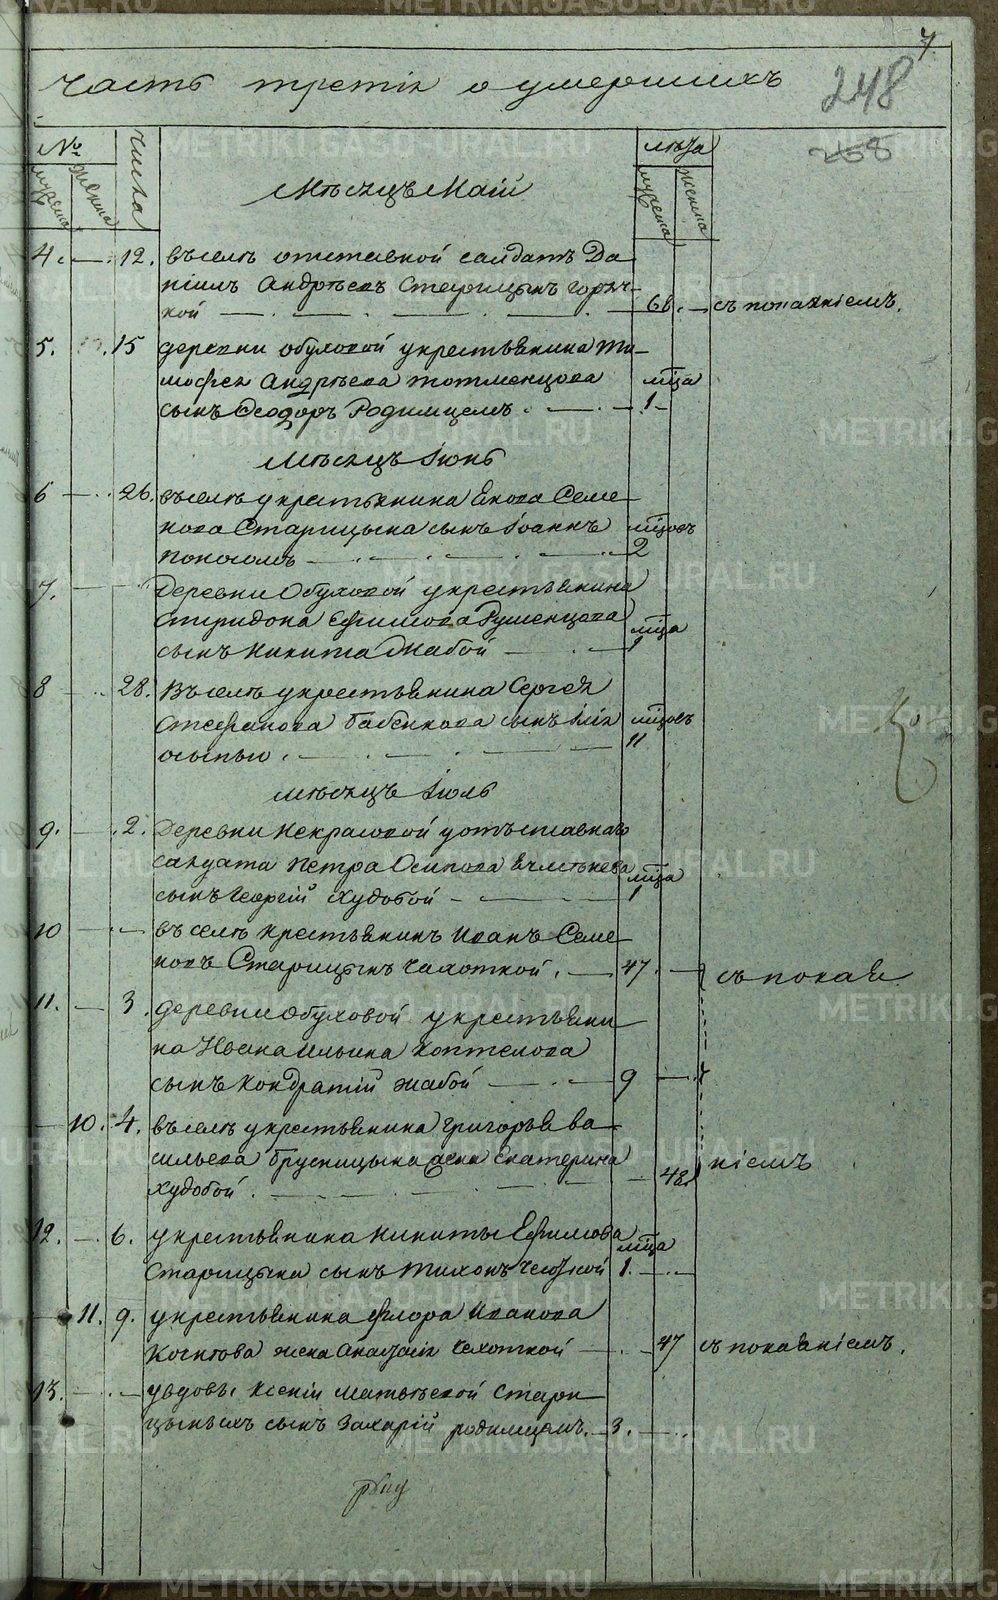 7
Часть третія о умершихъ
248
258
№
Числа
лѣта
мужеска
женска
мужеска
женска
Мѣсяцъ Маій
4. — 12. въ селѣ отставной салдатъ Да-
ніилъ Андрѣевъ Старицынъ горяч-
кой — 68. — съ покаяніемъ.
5. 15 деревни обуховой у крестьянина Ти-
мофея Андрѣева тотменцова мца
сынъ Ѳеодоръ Родимцемъ. — 1 —
Мѣсяцъ Іюнь
6 — 26. въ селѣ у крестьянина Енова Семе-
нова Старицына сынъ Іоаннъ мцовъ
поносомъ — 2
7. — Деревни Обуховой у крестьянина
Спиридона Ефимова Румянцова мца
сынъ Никита Жабой — 1
8 — 28. Въ селѣ у крестьянина Сергея
Стефанова Бабенкова сынъ Илія мцовъ
осыпью. — 11
мѣсяцъ Іюль
9. — 2. Деревни Некрасовой у отъставнаго
салдата Петра Осипова мца
сынъ Георгій Худобой — 1
10 — въ селѣ крестьянинъ Иванъ Семе-
новъ Старицынъ чахоткой. — 47. — съ покая
11. — 3. деревни Обуховой у крестьяни-
на Ивана Ильина Коптелова
сынъ Кондратій жабой — 9 —
— 10. 4. въ селѣ у крестьянина Григорья Ва-
сильева Брусницына жена Екатерина
худобой. — 48 ніемъ
12. — 6. у крестьянина Никиты Ефимова мца
Старицына сынъ Тихонъ 1. —
— 11. 9. у крестьянина Флора Иванова
Кочнева жена Анастасія чахоткой — 47 съ покаяніемъ.
13. — у вдовы Ксеніи Матвѣевой Стари-
цыныхъ сынъ Захарій родимцемъ. — 3. —